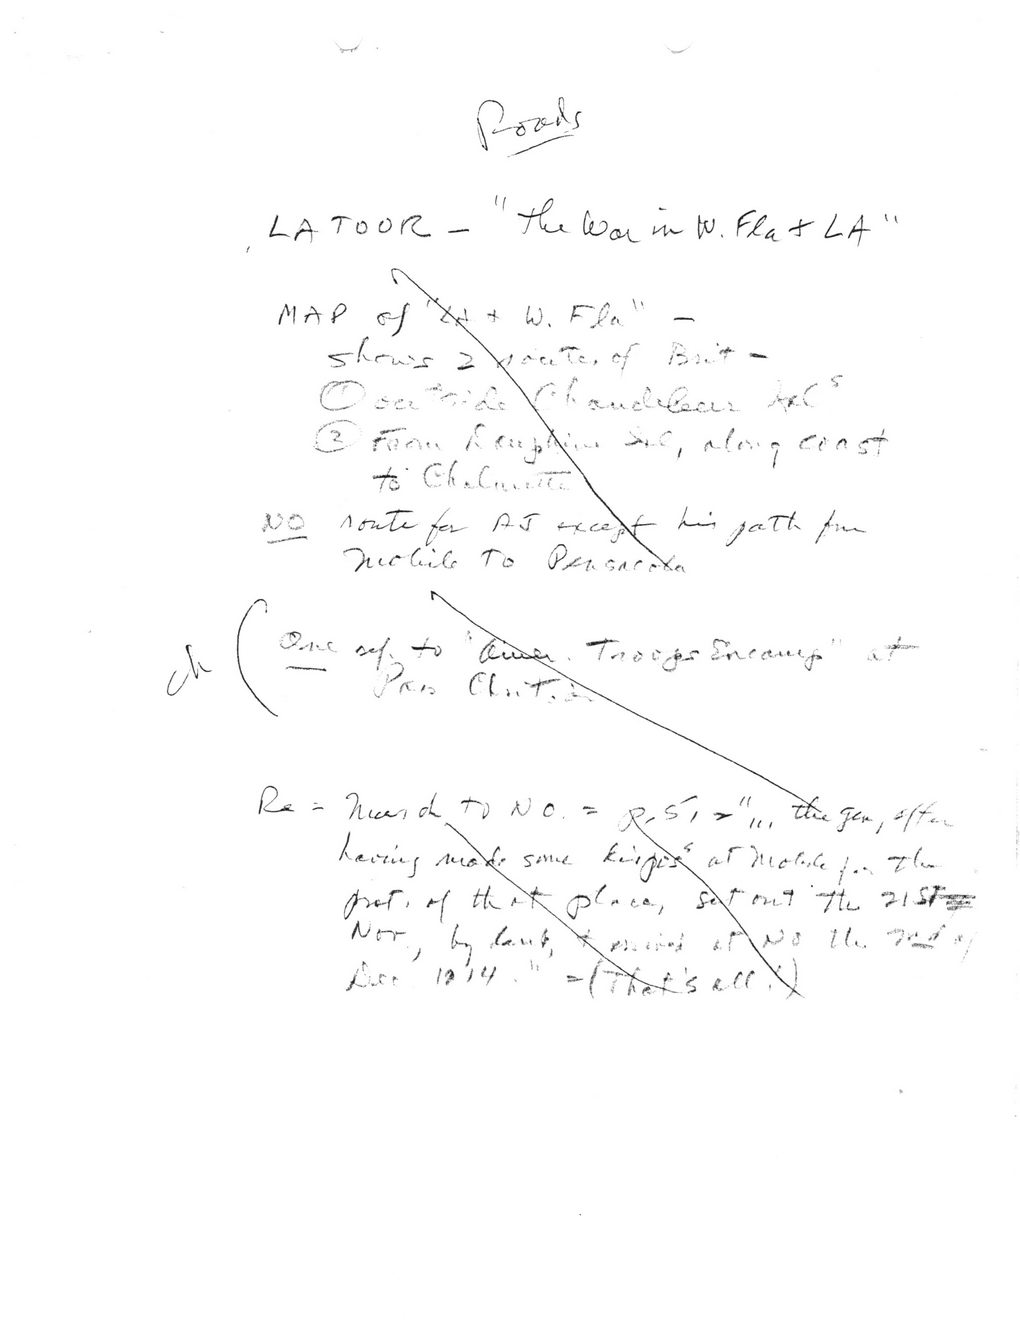 Roads
LATOUR - "The War in W. Fla + LA"
MAP of "LA + W. Fla" -
shows 2 routes of Brit -
① outside Chandeleur Isls
② From Dauphine Isl, along coast
to Chalmette
NO route for AJ except his path from
Mobile to Pensacola
ch ( One ref. to "Amer. Troops Encamp" at
Pass Christian
Re = March to NO. = p. 51 = "... the gen, after
having made some at Mobile for the
prot. of that place, set out the 21st
Nov., by land, + arrived at NO the 2nd of
Dec. 1814." = (That's all!)